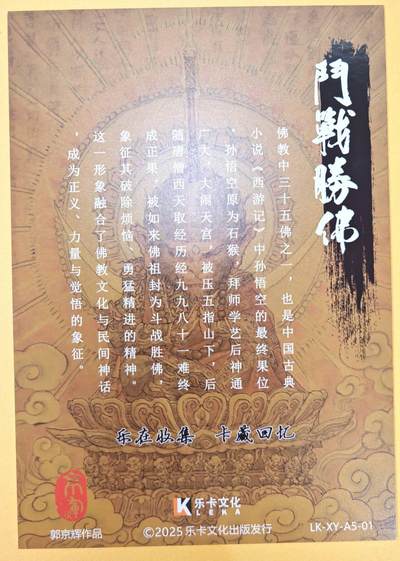 鬥戰勝佛
佛教中三十五佛之一，也是中国古典
小说《西游记》中孙悟空的最终果位
。孙悟空原为石猴，拜师学艺后神通
广大，大闹天宫，被压五指山下，后
随唐僧西天取经历经九九八十一难终
成正果，被如来佛祖封为斗战胜佛，
象征其破除烦恼、勇猛精进的精神。
这一形象融合了佛教文化与民间神话
，成为正义、力量与觉悟的象征。
乐在收集 卡藏回忆
K 乐卡文化
LEKA
郭京辉作品
©2025乐卡文化出版发行
LK-XY-A5-01